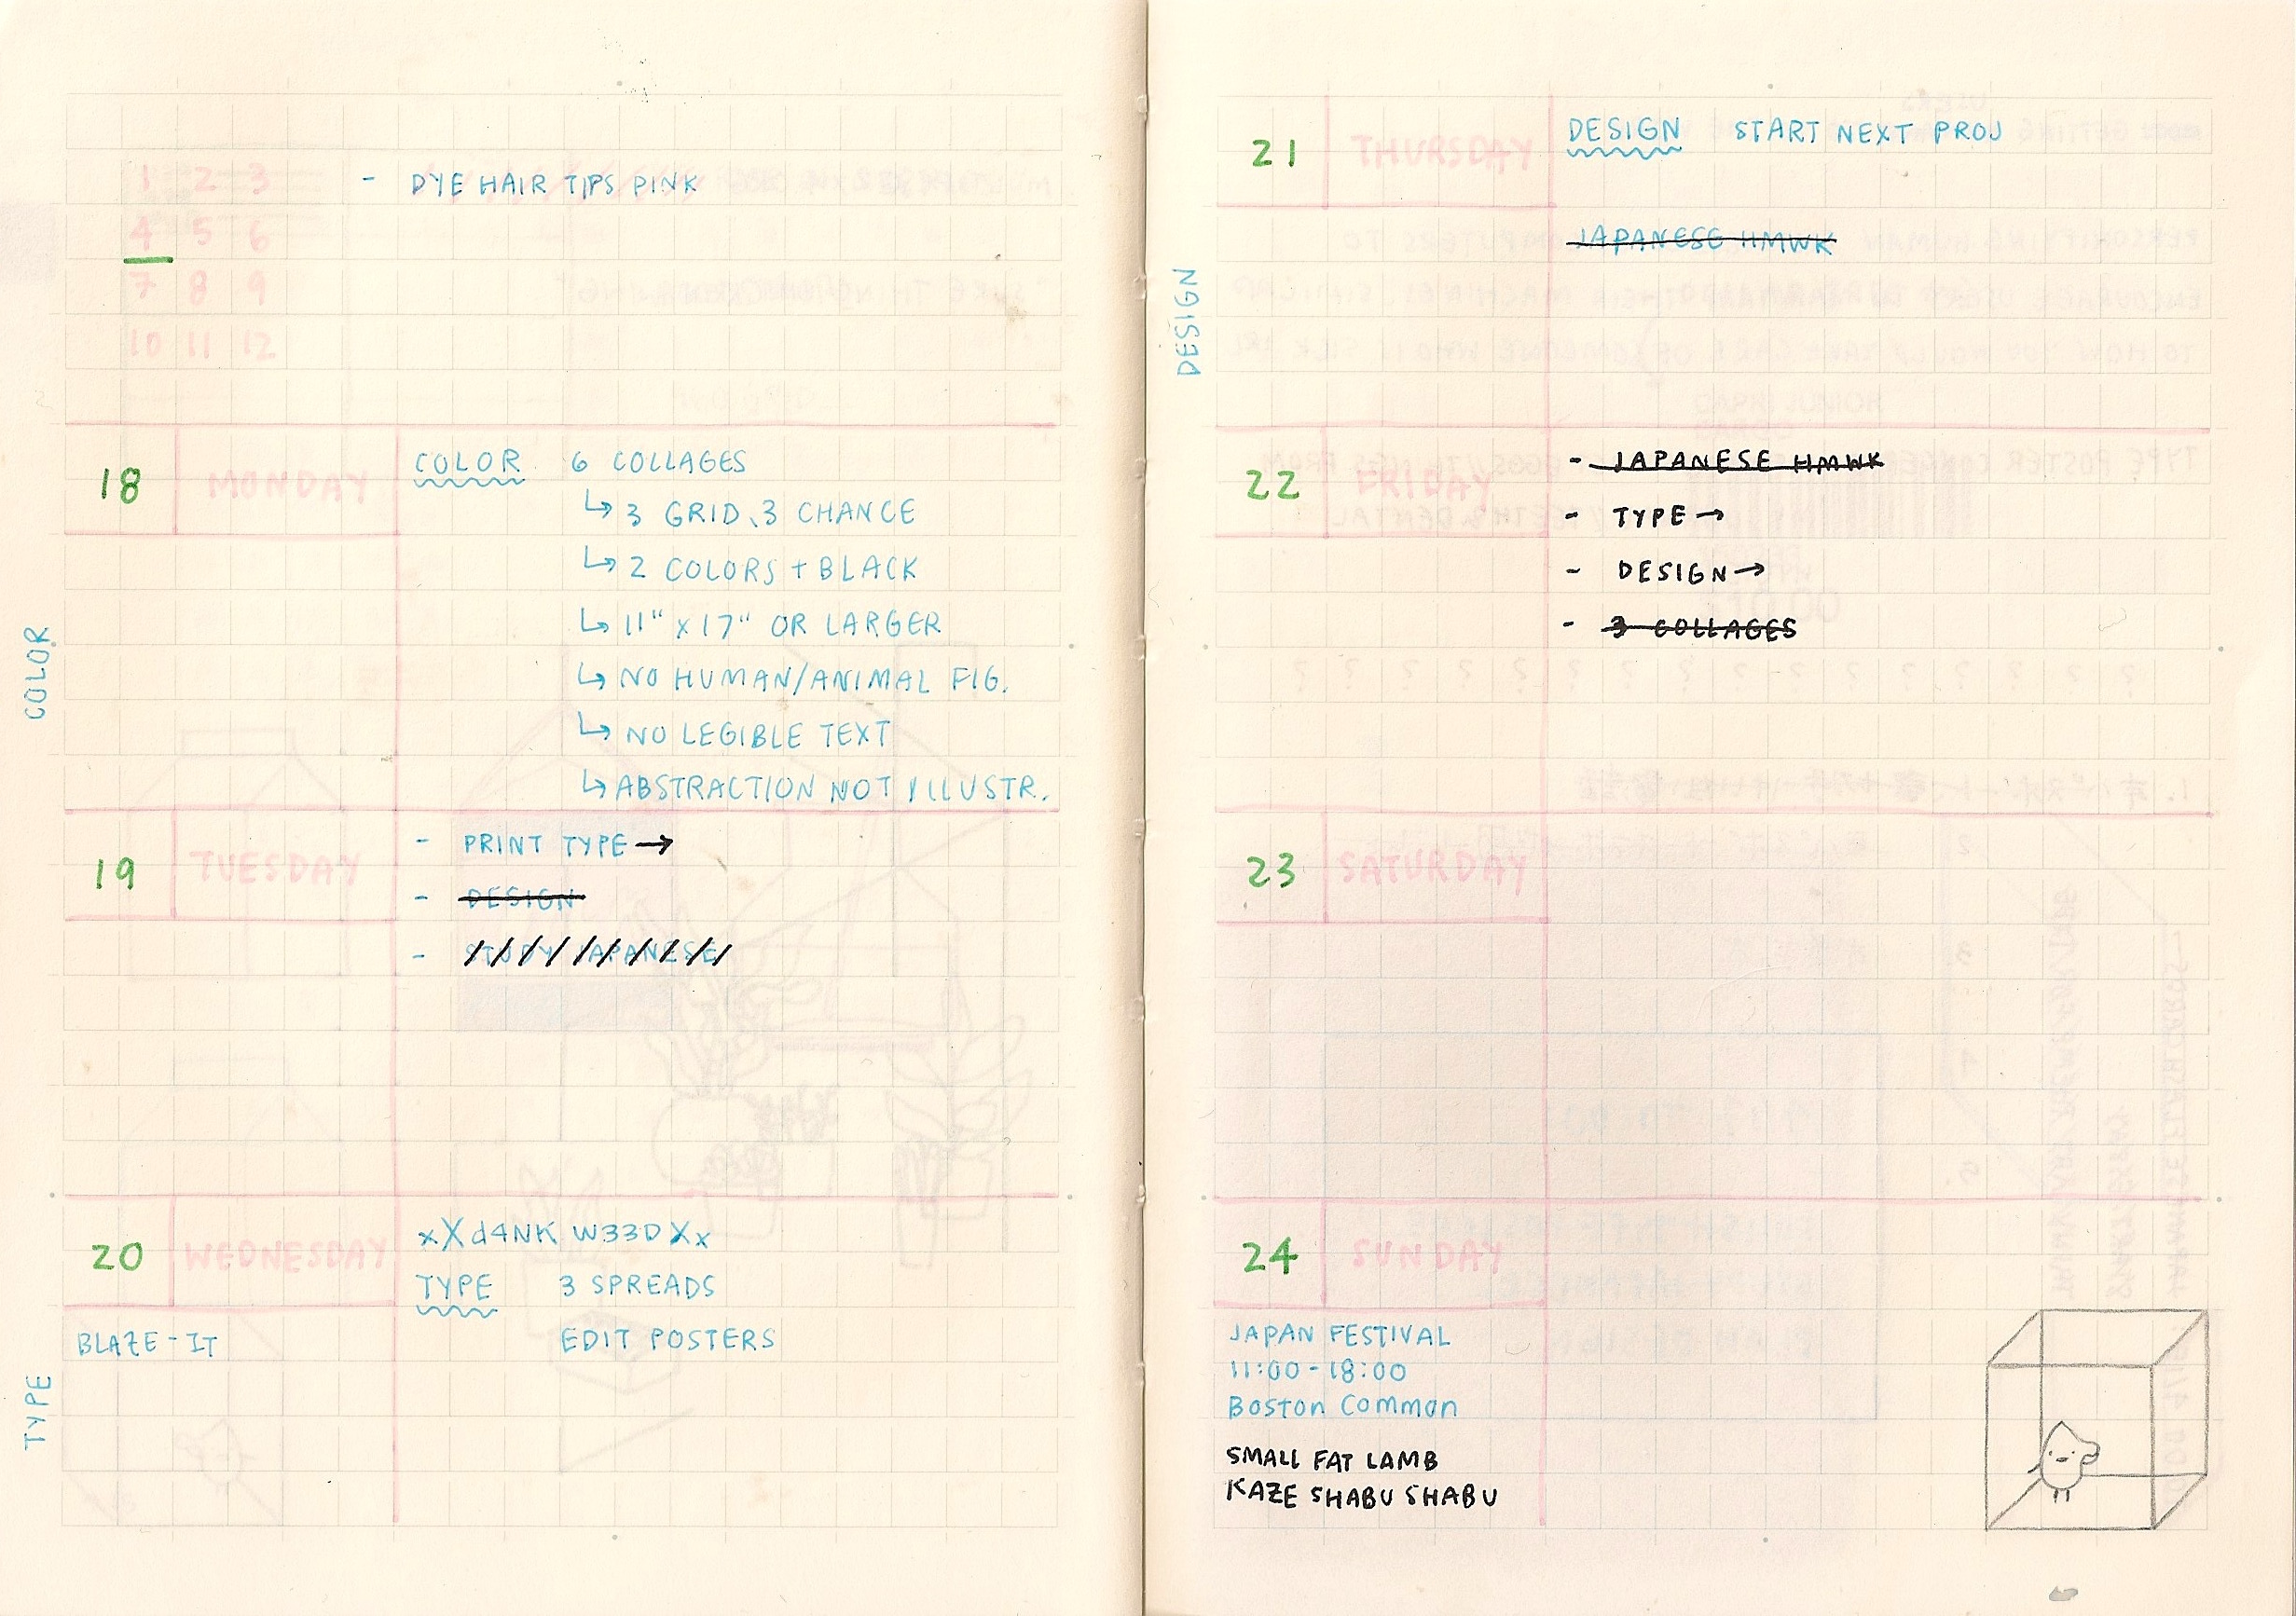 1 2 3
4 5 6
7 8 9
10 11 12
- DYE HAIR TIPS PINK
18 MONDAY
COLOR 6 COLLAGES
↳ 3 GRID, 3 CHANCE
↳ 2 COLORS + BLACK
↳ 11" x 17" OR LARGER
↳ NO HUMAN/ANIMAL FIG.
↳ NO LEGIBLE TEXT
↳ ABSTRACTION NOT ILLUSTR.
COLOR
19 TUESDAY
- PRINT TYPE →
- DESIGN
- STUDY JAPANESE
20 WEDNESDAY
xXd4NK W33DXx
TYPE 3 SPREADS
EDIT POSTERS
BLAZE-IT
TYPE
21 THURSDAY
DESIGN START NEXT PROJ
JAPANESE HMWK
DESIGN
22 FRIDAY
- JAPANESE HMWK
- TYPE →
- DESIGN →
- 3 COLLAGES
23 SATURDAY
24 SUNDAY
JAPAN FESTIVAL
11:00-18:00
Boston Common
SMALL FAT LAMB
KAZE SHABU SHABU